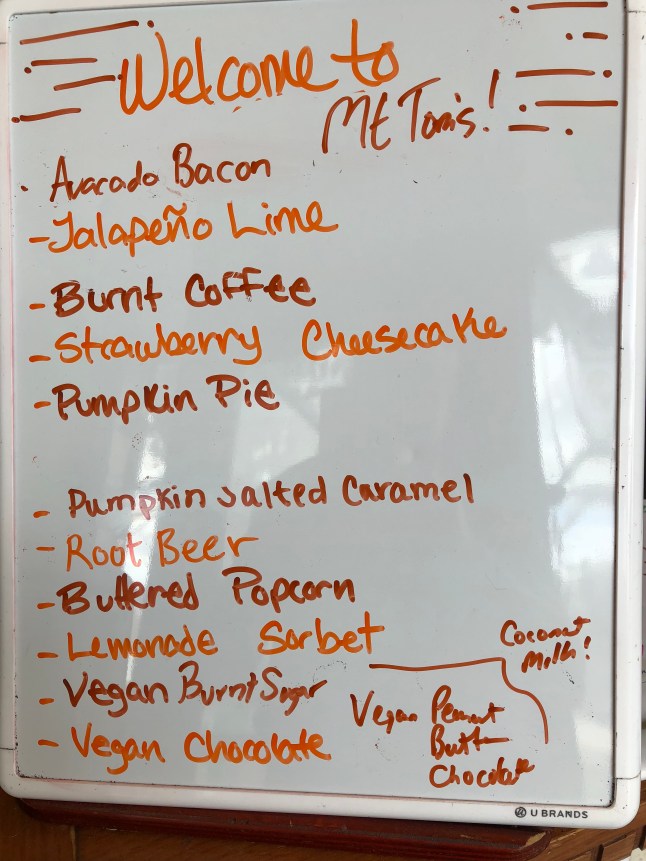 Welcome to
Mt Tom's!
Avacado Bacon
- Jalapeño Lime
- Burnt Coffee
- Strawberry Cheesecake
- Pumpkin Pie
- Pumpkin Salted Caramel
- Root Beer
- Buttered Popcorn
- Lemonade Sorbet
- Vegan Burnt Sugar
- Vegan Chocolate
Coconut
Milk!
Vegan Peanut
Butter
Chocolate
U BRANDS